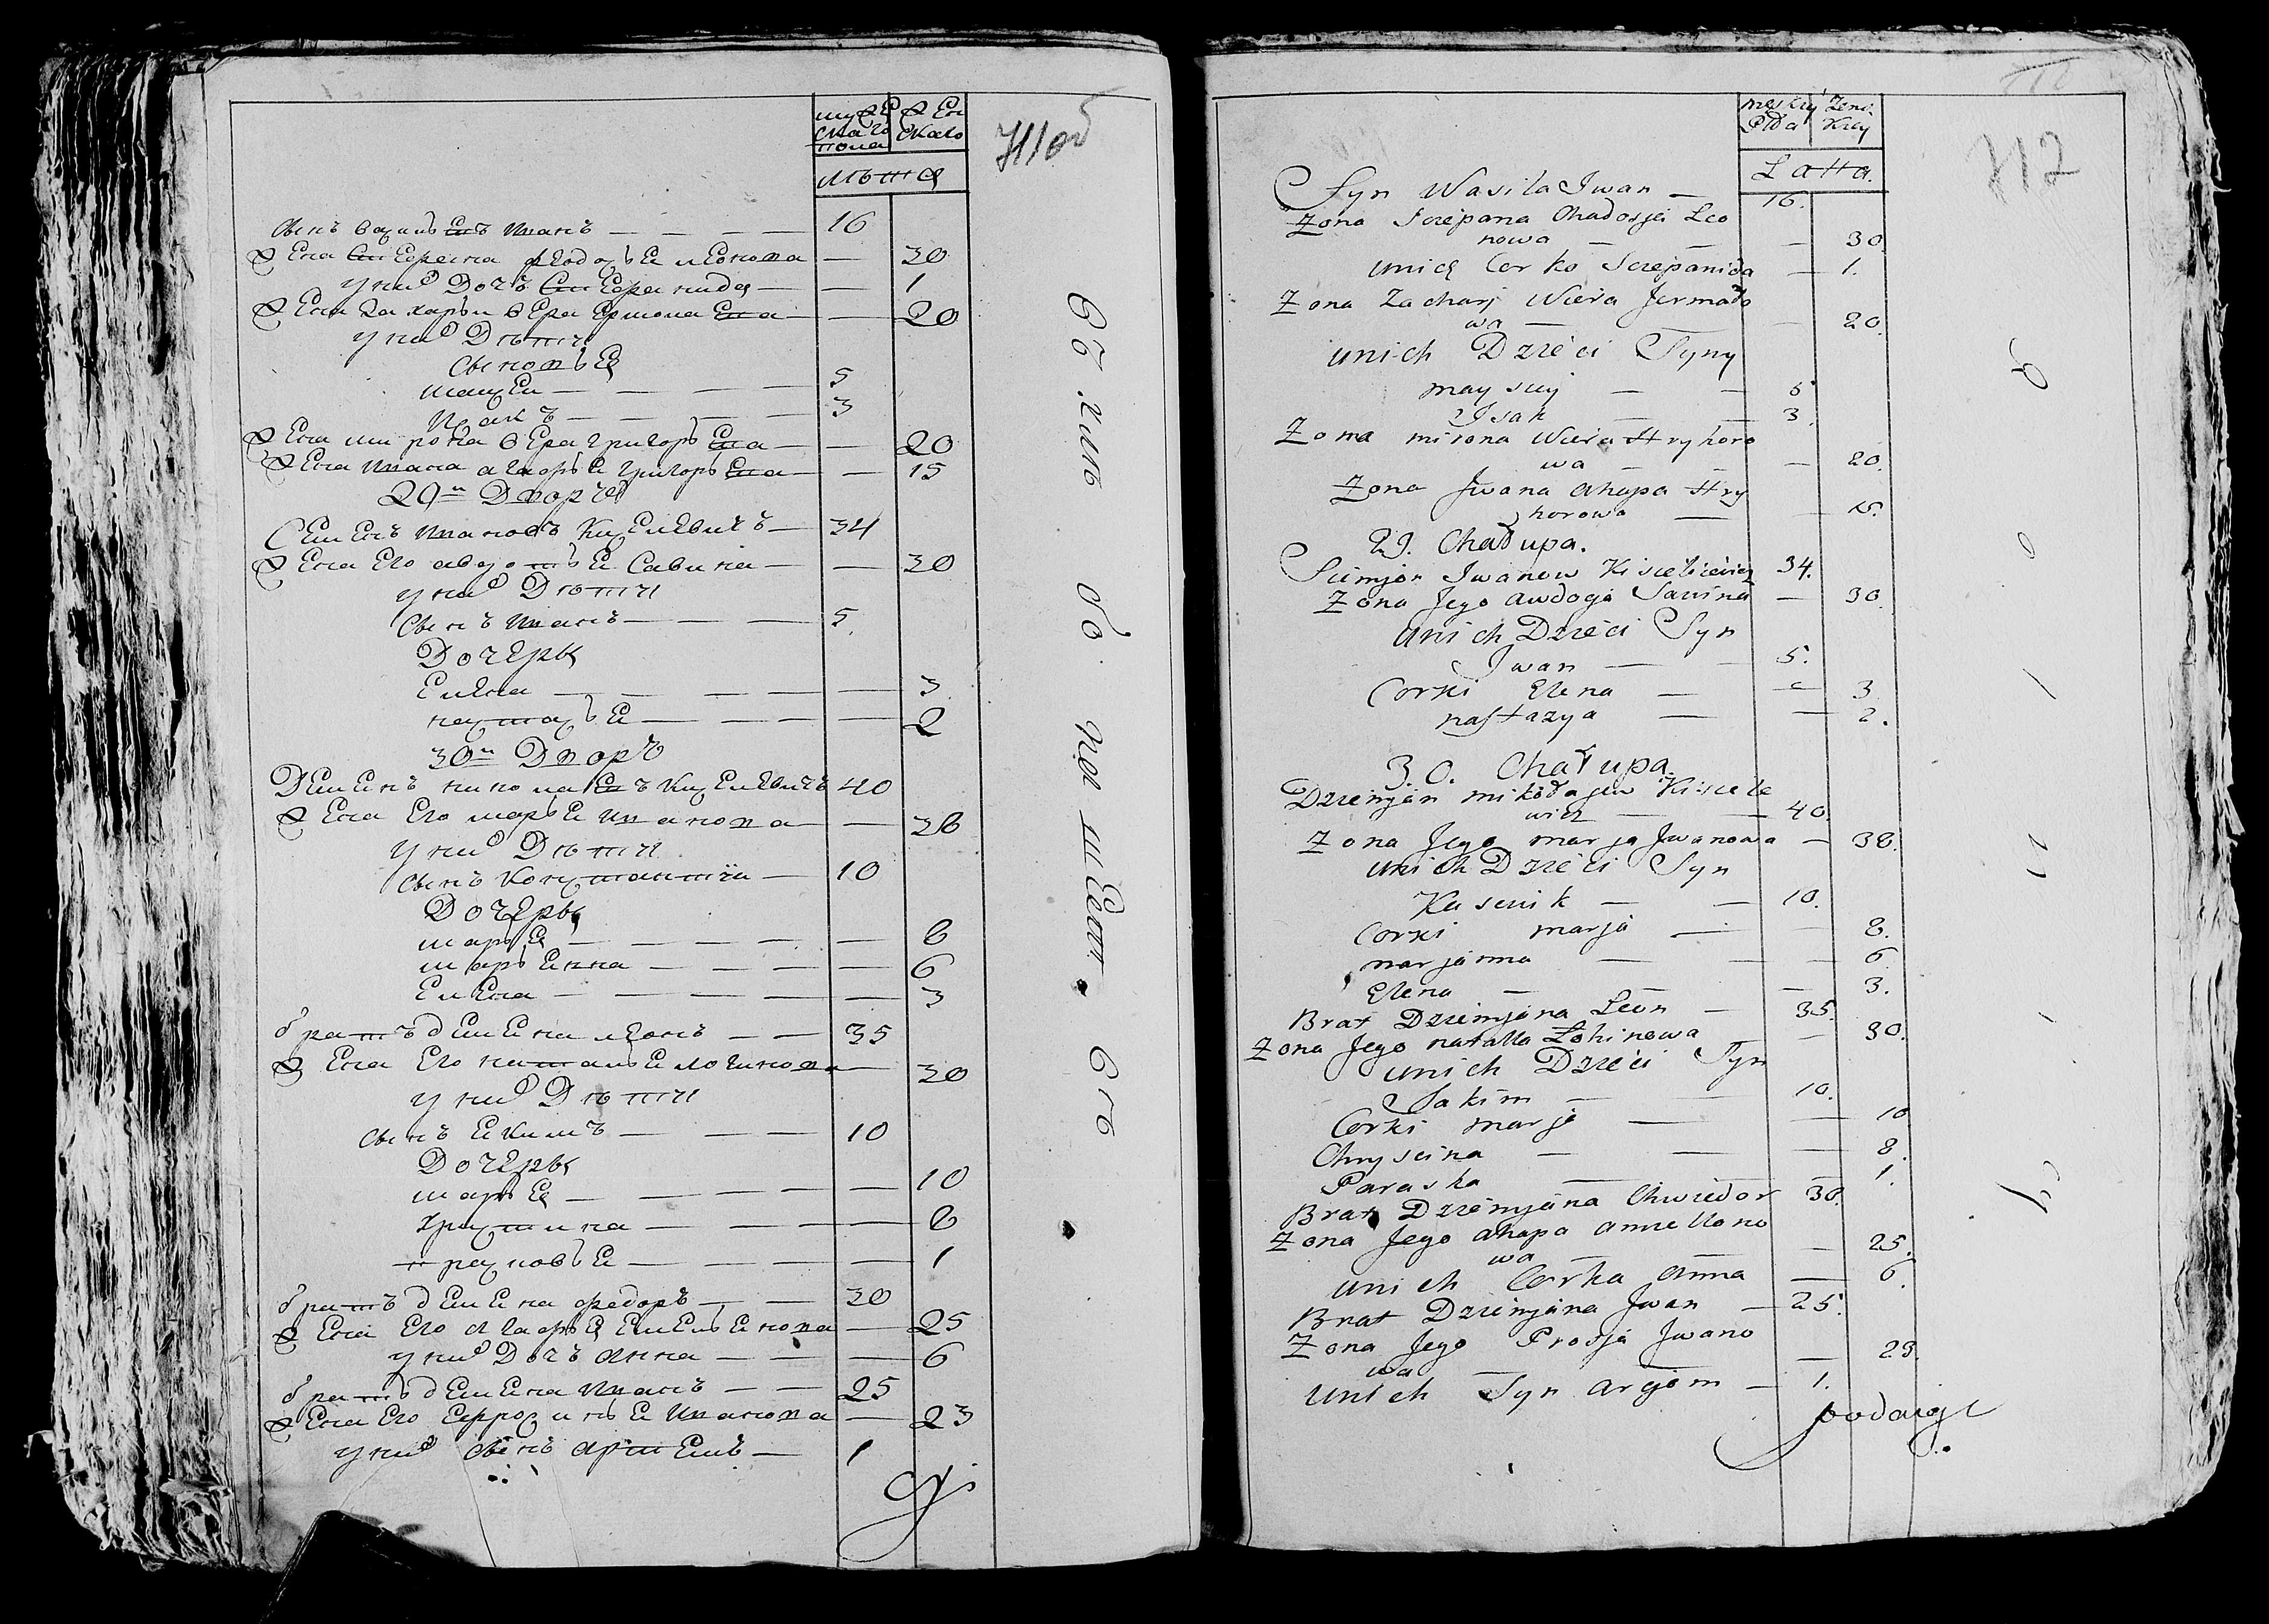 мужескаго пола
женскаго
лѣта
711 об
сынъ василѣвъ иванъ — 16
жена степана феодосья леонова — 30
у них дочъ степанида — 1
жена захарьи вера ермолаева — 20
у них Дѣти
сыновья
моисеи — 5
исакъ — 3
жена мирона вера григорьева — 20
жена ивана агафья григорьева — 15
29й Дворъ
Семенъ ивановъ Киселевичъ — 34
жена его авдотья Савина — 30
у них Дѣти
сынъ иванъ — 5
Дочеры
елена — 3
настасья — 2
30й Дворъ
Демьянъ николаевъ Киселевичъ 40
жена его марья иванова — 38
у них Дѣти
сынъ константiи — 10
Дочеры
марья — 8
марьянна — 6
елена — 3
братъ демьяна леонъ — 35
жена его наталья логинова — 30
у них Дѣти
сынъ якимъ — 10
Дочеры
марья — 10
христина — 8
прасковья — 1
братъ демьяна федоръ — 30
жена его агафья емельянова — 25
у них Дочъ анна — 6
братъ демьяна иванъ — 25
жена его ефросинья иванова — 23
у них сынъ артемъ — 1
męskiej Płci
Żeńskiey
Latta.
712
Syn Wasila Jwan — 16.
Zona Sciepana Chadosja Leo
nowa — 30.
unich Corko Sciepanida — 1.
Zona Zacharj Wiera Jermało
wa — 20.
unich Dzieci Syny
maysiey — 5
Jsak — 3.
Zona mirona Wiera Hryhoro
wa — 20.
Zona Jwana Ahapa Hry
horowa — 15.
29. Chałupa.
Siemjon Jwanow Kisielewicz 34.
Zona Jego Awdoja Sawina — 30.
unich Dzieci Syn
Jwan — 5.
Corki Elena — 3
nastazya — 2.
30. Chałupa
Dziemjan mikołajew Kisiele
wicz — 40.
Zona Jego marja Jwanowa — 38.
unich Dzieci Syn
Kascik — 10.
Corki marja — 8.
marjanna — 6
Elena — 3.
Brat Dziemjana Leon — 35.
Zona Jego natalla Łohinowa — 30.
unich Dzieci Syn
Jakim — 10.
Corki marja — 10
Chryscina — 8.
Paraska — 1.
Brat Dziemjana Chwiedor 30.
Zona Jego Ahapa amielano
wa — 25.
unich Corka Anna — 6.
Brat Dziemjana Jwan — 25.
Zona Jego Prosja Jwano
wa — 23.
unich Syn Arcjom — 1.